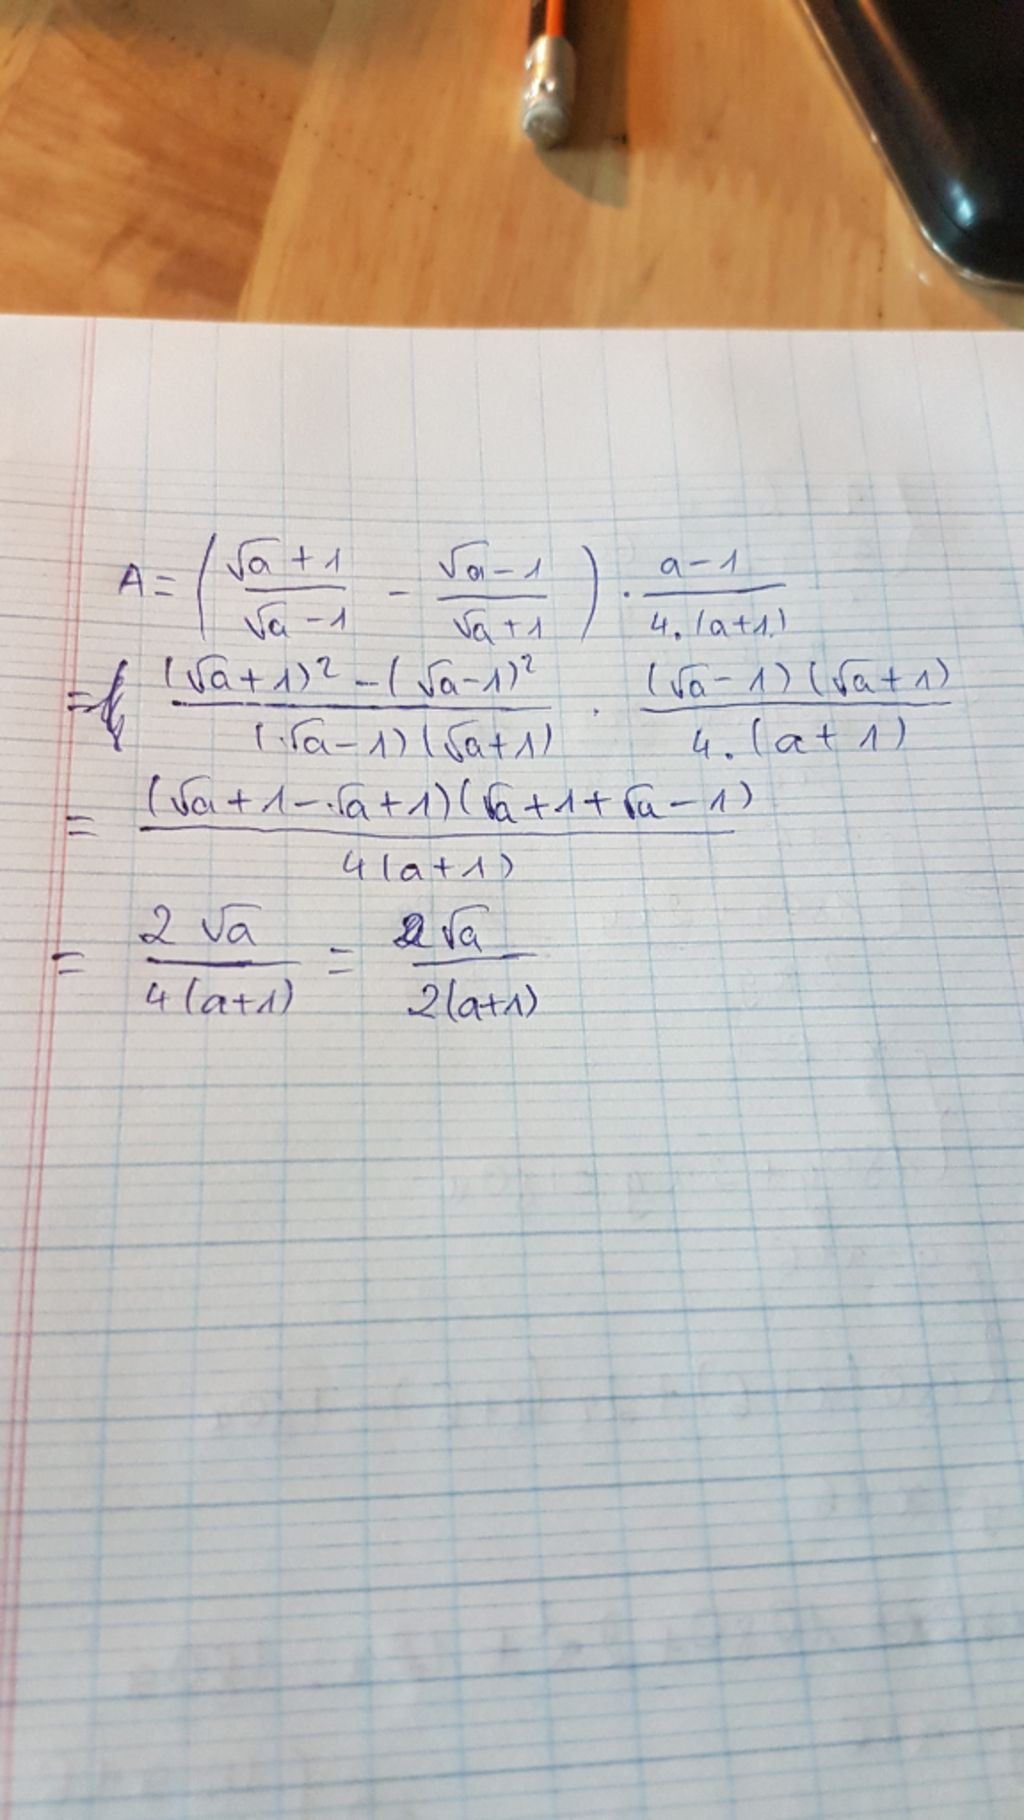 A = ( (√a + 1)/(√a - 1) - (√a - 1)/(√a + 1) ) . (a - 1)/(4.(a+1))
= ((√a + 1)² - (√a - 1)²)/((√a - 1)(√a + 1)) . ((√a - 1)(√a + 1))/(4.(a + 1))
= ((√a + 1 - √a + 1)(√a + 1 + √a - 1))/(4(a + 1))
= (2√a)/(4(a+1)) = (2√a)/(2(a+1))